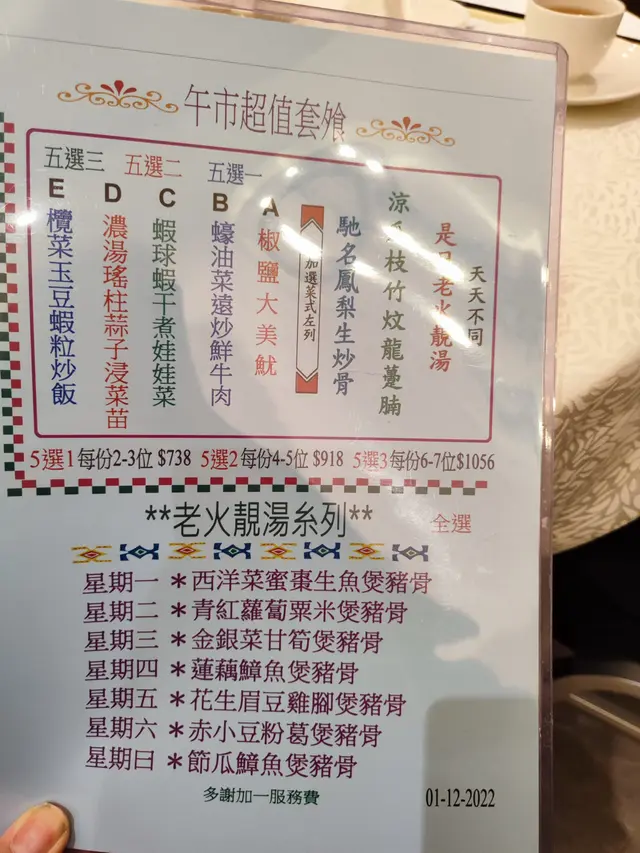 午市超值套飧
天天不同
是日老火靚湯
涼瓜枝竹炆龍躉腩
馳名鳳梨生炒骨
加選菜式左列
五選一
五選二
五選三
A 椒鹽大美魷
B 蠔油菜遠炒鮮牛肉
C 蝦球蝦干煮娃娃菜
D 濃湯瑤柱蒜子浸菜苗
E 欖菜玉豆蝦粒炒飯
5選1每份2-3位 $738 5選2每份4-5位 $918 5選3每份6-7位$1056
**老火靚湯糸列**
全選
星期一 *西洋菜蜜棗生魚煲豬骨
星期二 *青紅蘿蔔粟米煲豬骨
星期三 *金銀菜甘筍煲豬骨
星期四 *蓮藕鱆魚煲豬骨
星期五 *花生眉豆雞腳煲豬骨
星期六 *赤小豆粉葛煲豬骨
星期曰 *節瓜鱆魚煲豬骨
多謝加一服務費
01-12-2022